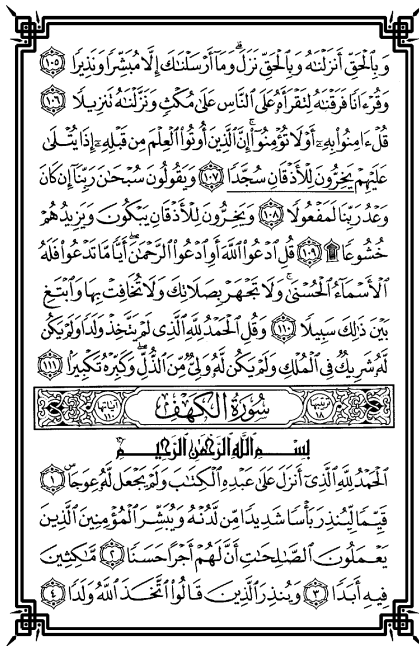 وَبِٱلْحَقِّ أَنزَلْنَـٰهُ وَبِٱلْحَقِّ نَزَلَ ۗ وَمَآ أَرْسَلْنَـٰكَ إِلَّا مُبَشِّرًا وَنَذِيرًا ١٠٥
وَقُرْءَانًا فَرَقْنَـٰهُ لِتَقْرَأَهُۥ عَلَى ٱلنَّاسِ عَلَىٰ مُكْثٍ وَنَزَّلْنَـٰهُ تَنزِيلًا ١٠٦
قُلْ ءَامِنُوا۟ بِهِۦٓ أَوْ لَا تُؤْمِنُوٓا۟ ۚ إِنَّ ٱلَّذِينَ أُوتُوا۟ ٱلْعِلْمَ مِن قَبْلِهِۦٓ إِذَا يُتْلَىٰ
عَلَيْهِمْ يَخِرُّونَ لِلْأَذْقَانِ سُجَّدًا ١٠٧ وَيَقُولُونَ سُبْحَـٰنَ رَبِّنَآ إِن كَانَ
وَعْدُ رَبِّنَا لَمَفْعُولًا ١٠٨ وَيَخِرُّونَ لِلْأَذْقَانِ يَبْكُونَ وَيَزِيدُهُمْ
خُشُوعًا ۩ ١٠٩ قُلِ ٱدْعُوا۟ ٱللَّهَ أَوِ ٱدْعُوا۟ ٱلرَّحْمَـٰنَ ۖ أَيًّا مَّا تَدْعُوا۟ فَلَهُ
ٱلْأَسْمَآءُ ٱلْحُسْنَىٰ ۚ وَلَا تَجْهَرْ بِصَلَاتِكَ وَلَا تُخَافِتْ بِهَا وَٱبْتَغِ
بَيْنَ ذَٰلِكَ سَبِيلًا ١١٠ وَقُلِ ٱلْحَمْدُ لِلَّهِ ٱلَّذِى لَمْ يَتَّخِذْ وَلَدًا وَلَمْ يَكُن
لَّهُۥ شَرِيكٌ فِى ٱلْمُلْكِ وَلَمْ يَكُن لَّهُۥ وَلِىٌّ مِّنَ ٱلذُّلِّ ۖ وَكَبِّرْهُ تَكْبِيرًا ١١١
سُورَةُ الكَهْفِ
بِسْمِ ٱللَّهِ ٱلرَّحْمَـٰنِ ٱلرَّحِيمِ
ٱلْحَمْدُ لِلَّهِ ٱلَّذِىٓ أَنزَلَ عَلَىٰ عَبْدِهِ ٱلْكِتَـٰبَ وَلَمْ يَجْعَل لَّهُۥ عِوَجَا ۜ ١
قَيِّمًا لِّيُنذِرَ بَأْسًا شَدِيدًا مِّن لَّدُنْهُ وَيُبَشِّرَ ٱلْمُؤْمِنِينَ ٱلَّذِينَ
يَعْمَلُونَ ٱلصَّـٰلِحَـٰتِ أَنَّ لَهُمْ أَجْرًا حَسَنًا ٢ مَّـٰكِثِينَ
فِيهِ أَبَدًا ٣ وَيُنذِرَ ٱلَّذِينَ قَالُوا۟ ٱتَّخَذَ ٱللَّهُ وَلَدًا ٤